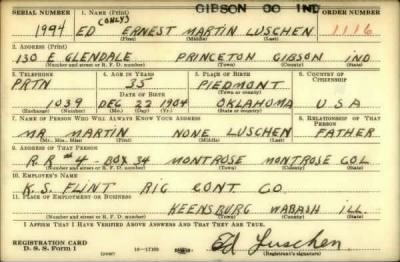 GIBSON CO IND
SERIAL NUMBER 1. NAME (Print) ORDER NUMBER
1994 ED (ONLY) ERNEST MARTIN LUSCHEN 1116
(First) (Middle) (Last)
2. ADDRESS (Print)
130 E GLENDALE PRINCETON GIBSON IND
(Number and street or R. F. D. number) (Town) (County) (State)
3. TELEPHONE 4. AGE IN YEARS 5. PLACE OF BIRTH 6. COUNTRY OF CITIZENSHIP
PRTN 35 PIEDMONT
DATE OF BIRTH (Town or county)
1039 DEC 22 1904 OKLAHOMA U S A
(Exchange) (Number) (Mo.) (Day) (Yr.) (State or country)
7. NAME OF PERSON WHO WILL ALWAYS KNOW YOUR ADDRESS 8. RELATIONSHIP OF THAT PERSON
MR MARTIN NONE LUSCHEN FATHER
(Mr., Mrs., Miss) (First) (Middle) (Last)
9. ADDRESS OF THAT PERSON
R.R #4 - BOX 34 MONTROSE MONTROSE COL
(Number and street or R. F. D. number) (Town) (County) (State)
10. EMPLOYER'S NAME
K.S. FLINT RIG CONT. CO.
11. PLACE OF EMPLOYMENT OR BUSINESS
KEENSBURG WABASH ILL.
(Number and street or R. F. D. number) (Town) (County) (State)
I AFFIRM THAT I HAVE VERIFIED ABOVE ANSWERS AND THAT THEY ARE TRUE.
REGISTRATION CARD
D. S. S. Form 1 Ed Luschen
(over) 16-17105 (Registrant's signature)